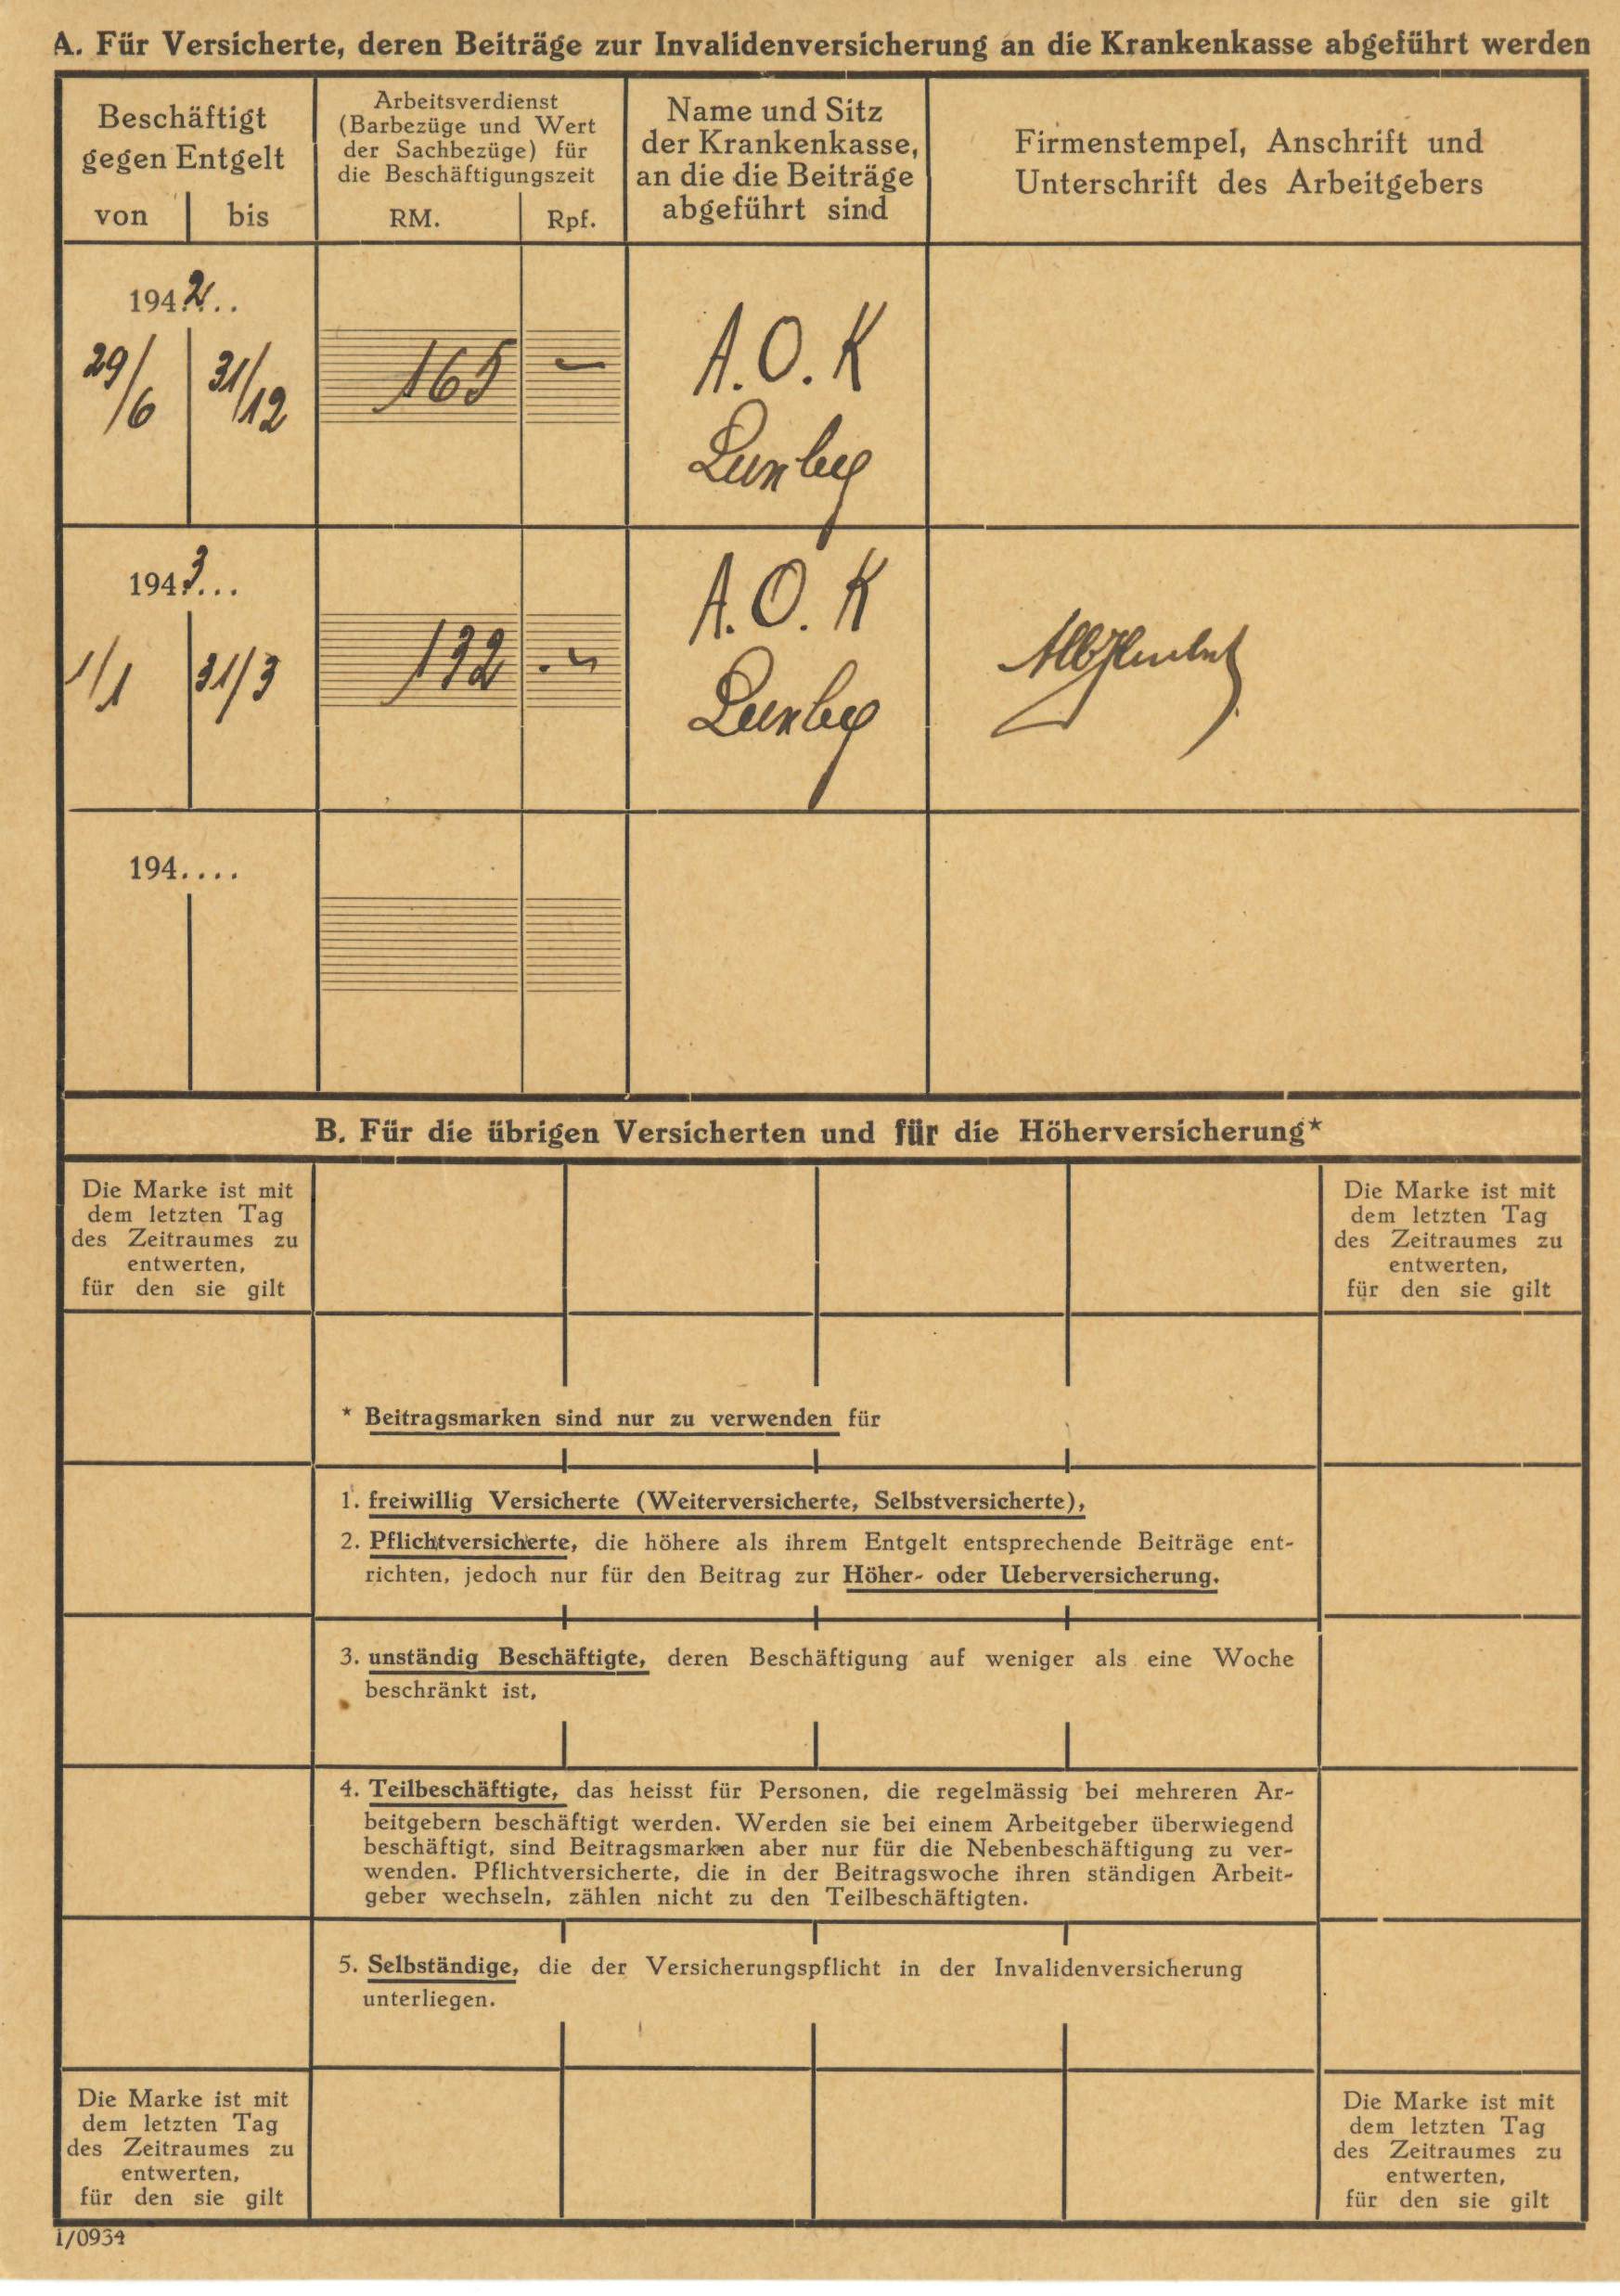 A. Für Versicherte, deren Beiträge zur Invalidenversicherung an die Krankenkasse abgeführt werden
Beschäftigt
gegen Entgelt
von bis
Arbeitsverdienst
(Barbezüge und Wert
der Sachbezüge) für
die Beschäftigungszeit
RM. Rpf.
Name und Sitz
der Krankenkasse,
an die die Beiträge
abgeführt sind
Firmenstempel, Anschrift und
Unterschrift des Arbeitgebers
1942..
29/6 31/12
165 –
A.O.K
1943...
1/1 31/3
132 .–
A.O.K
194....
B. Für die übrigen Versicherten und für die Höherversicherung*
Die Marke ist mit
dem letzten Tag
des Zeitraumes zu
entwerten,
für den sie gilt
Die Marke ist mit
dem letzten Tag
des Zeitraumes zu
entwerten,
für den sie gilt
* Beitragsmarken sind nur zu verwenden für
1. freiwillig Versicherte (Weiterversicherte, Selbstversicherte),
2. Pflichtversicherte, die höhere als ihrem Entgelt entsprechende Beiträge ent-
richten, jedoch nur für den Beitrag zur Höher- oder Ueberversicherung.
3. unständig Beschäftigte, deren Beschäftigung auf weniger als eine Woche
beschränkt ist,
4. Teilbeschäftigte, das heisst für Personen, die regelmässig bei mehreren Ar-
beitgebern beschäftigt werden. Werden sie bei einem Arbeitgeber überwiegend
beschäftigt, sind Beitragsmarken aber nur für die Nebenbeschäftigung zu ver-
wenden. Pflichtversicherte, die in der Beitragswoche ihren ständigen Arbeit-
geber wechseln, zählen nicht zu den Teilbeschäftigten.
5. Selbständige, die der Versicherungspflicht in der Invalidenversicherung
unterliegen.
Die Marke ist mit
dem letzten Tag
des Zeitraumes zu
entwerten,
für den sie gilt
Die Marke ist mit
dem letzten Tag
des Zeitraumes zu
entwerten,
für den sie gilt
I/0934